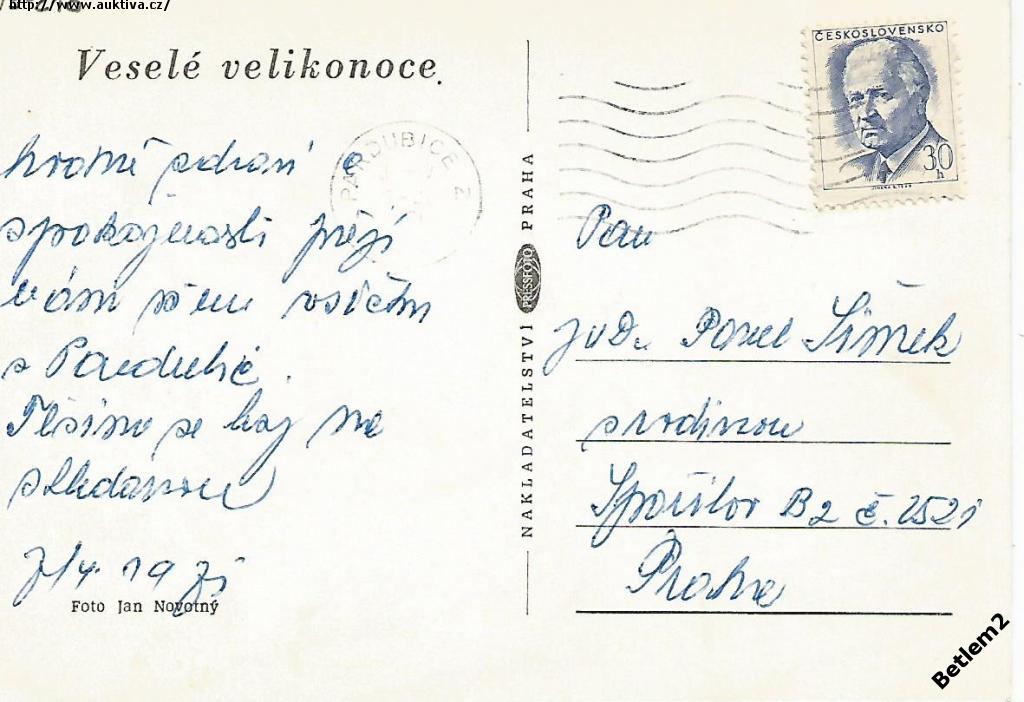 http://www.auktiva.cz/
Veselé velikonoce
hodně zdraví a
spokojenosti přejí
vám všem všichni
z Pardubic.
Těšíme se
7/4 1971
Foto Jan Novotný
NAKLADATELSTVÍ PRESSFOTO PRAHA
PARDUBICE 2
ČESKOSLOVENSKO
30
h
Pan
JUDr Pavel Šimek
s rodinou
Spořilov B2 č. 2521
Praha
Betlem2